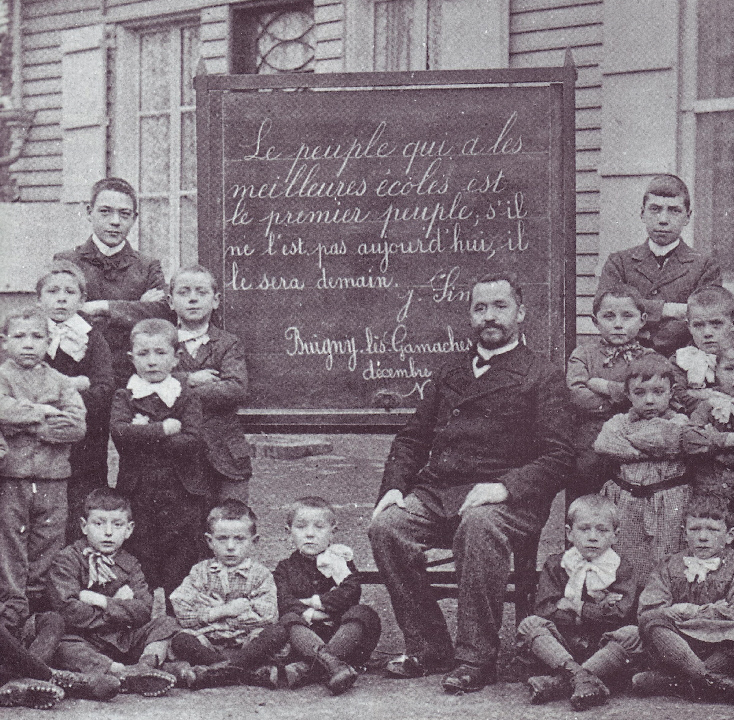 Le peuple qui a les
meilleures écoles est
le premier peuple; s'il
ne l'est pas aujourd'hui, il
le sera demain.
J. Sim
Buigny-lès-Gamaches
décembre
N